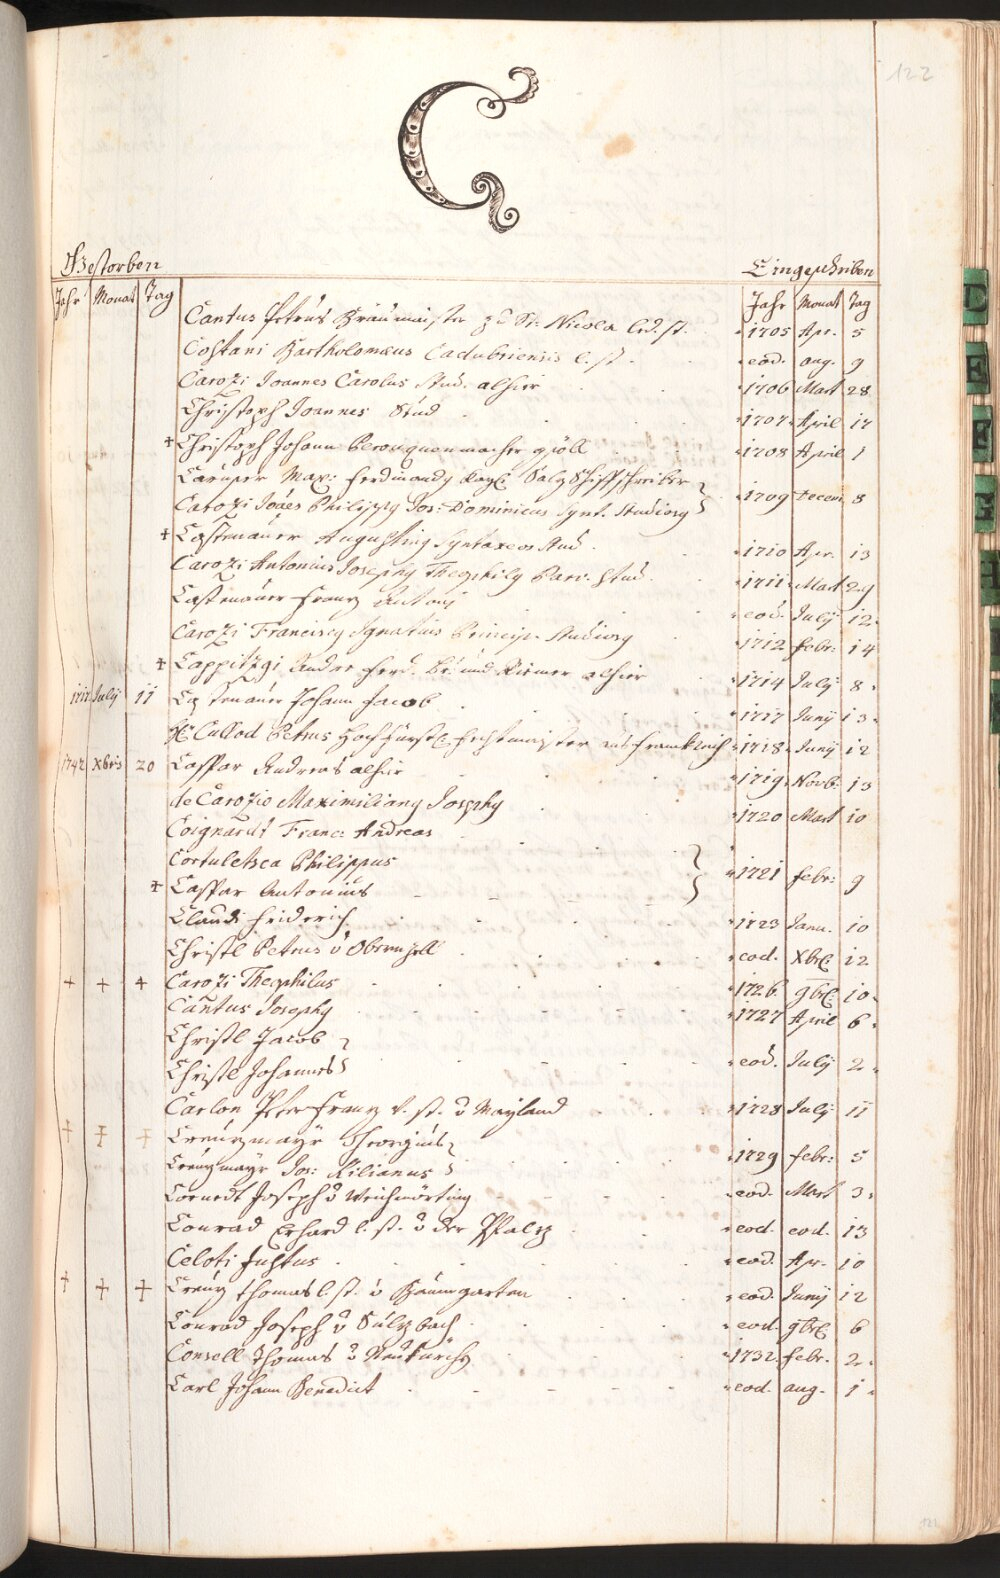 122
C
Gestorben Eingeschriben
Jahr Monat Tag Jahr Monat Tag
Cantus Petrus Bräumaister zu St: Nicola led. st. 1705 Apr. 5
Costani Bartholomæus Cadubriensis l. st. eod. aug. 9
Carozi Joannes Carolus Stud. alhier 1706 Mart 28
Christoph Joannes Stud 1707 April 17
+ Christoph Johann 1708 April 1
Max: Ferdinandy Salz Schiffschreiber
Carozi Joães Philippy Jos: Dominicus Synt. Studiosy 1709 Decem 8
+ Castenauer Augustiny Syntaxeos Stud. 1710 Apr. 13
Carozi Antonius Josephy Theophily Parv. Stud. 1711 Mart 29
Castenauer Franz Antoni eod. July 12
Carozi Franciscy Ignatius Princip. Studiosy 1712 Febr: 14
+ Cappitzgi Andre Ferd. alhier 1714 July 8
1717 July 11 Castenauer Johann Jacob 1717 Juny 13
H: Collod Petrus Hochfürstl: Fechtmaister aus Frankreich 1718 Juny 12
1742 Xbris 20 Caspar Andreas alhier 1719 Novb: 13
de Carozio Maximiliany Josephy 1720 Mart 10
Coignardt Franc: Andreas
Cortuletsca Philippus
+ Caspar Antonius 1721 Febr: 9
Claudi Friderich 1723 Janu. 10
Christl Petrus v Obernzell eod. Xbr: 12
+ + + Carozi Theophilus 1726 9br: 10
Cantus Josephy 1727 April 6
Christl Jacob
Christl Johannes eod. July 2
Carlon Peter Franz l. st. v Mayland 1728 July 11
+ + + Creuzmayr Georgius
Creuzmayr Jos: Kilianus 1729 Febr: 5
Cornedt Joseph v Weichmörting eod. Mart 3
Conrad Erhard l. st. v der Pfalz eod. eod. 13
Celoti Justus eod. Apr. 10
+ + + Creuz Thomas l. st. v Baumgarten eod. Juny 12
Conrad Joseph v Sulzbach eod. 9br: 6
Consell Thomas v Neukirch 1732 Febr. 2
Carl Johann Benedict eod. aug. 1
D
E
F
H
122